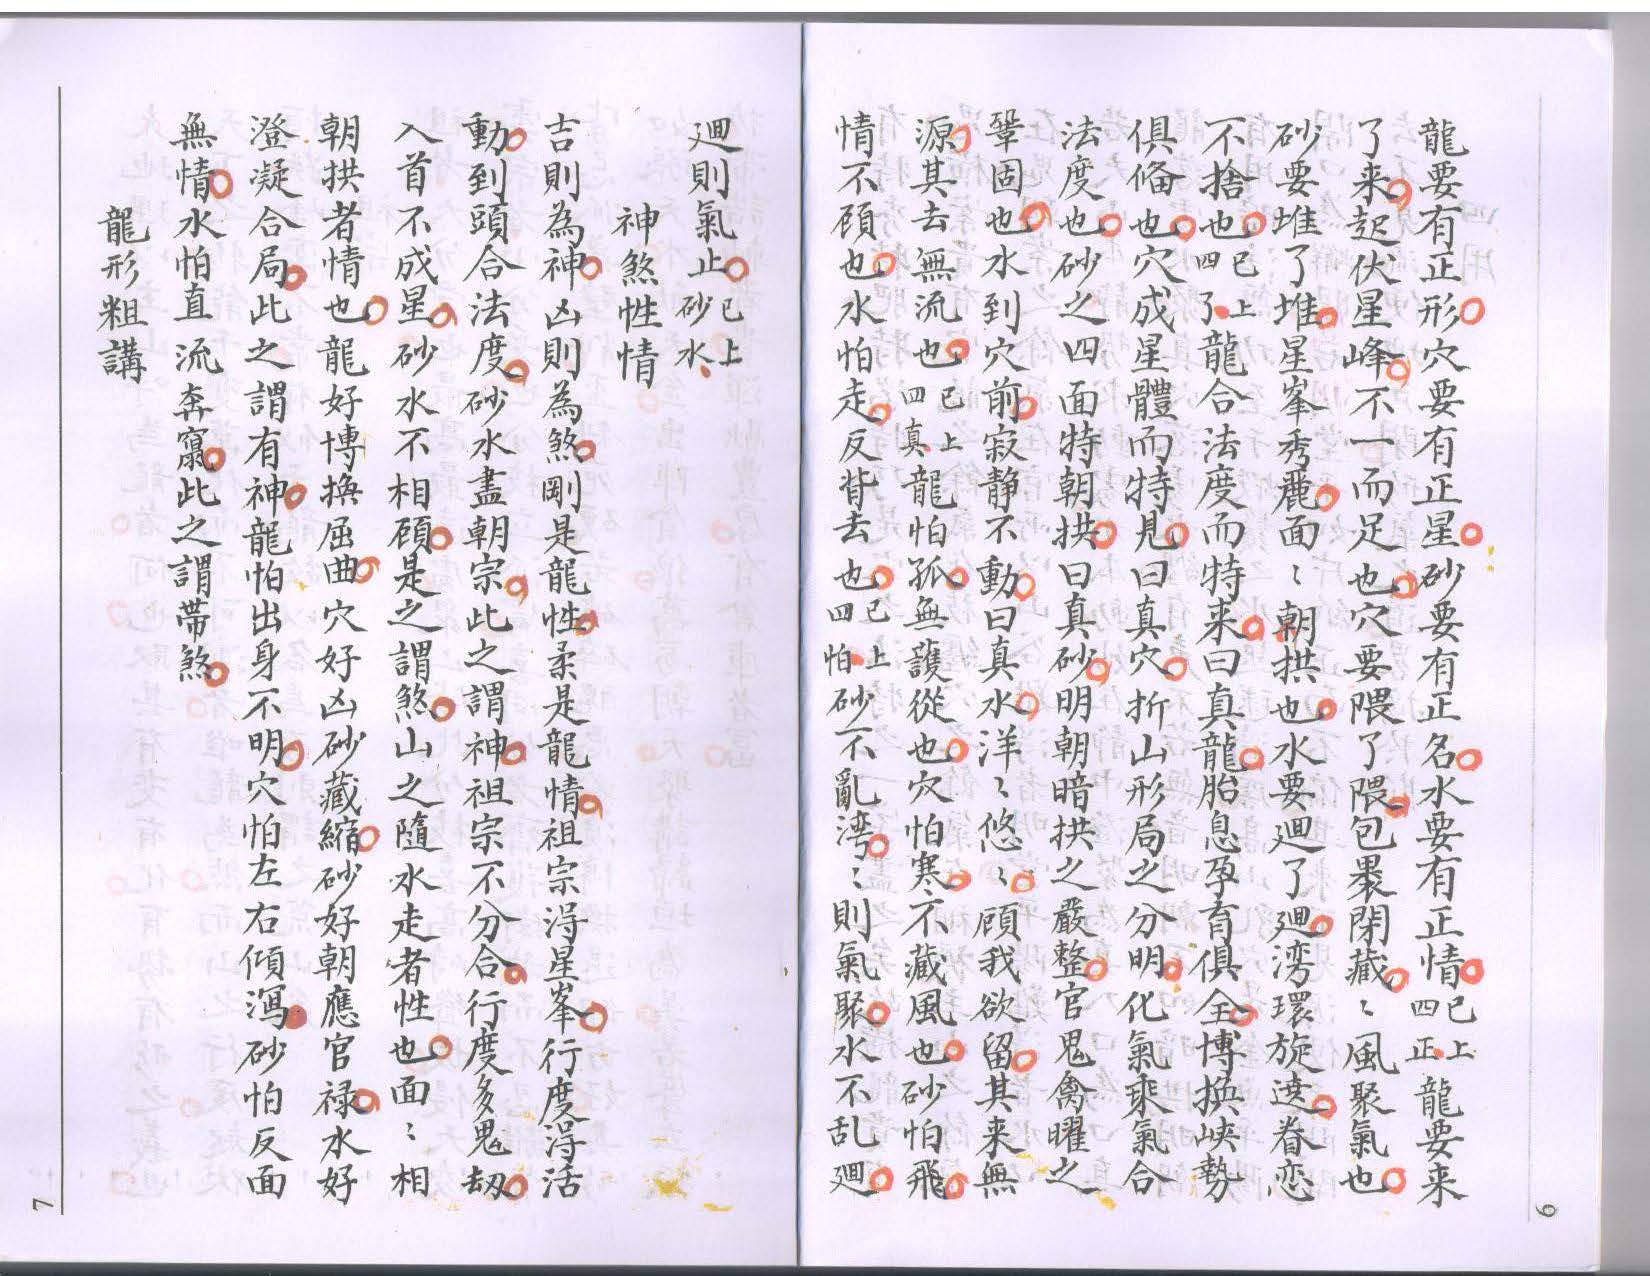 龍要有正形穴要有正星砂要有正名水要有正情已上四正龍要来
了来起伏星峰不一而足也穴要隈了隈包裹閉藏〻風聚氣也
砂要堆了堆星峯秀麗面〻朝拱也水要廻了廻湾環旋遶眷恋
不捨也已上四了龍合法度而特来曰真龍胎息孕育俱全博換峽勢
俱俻也穴成星體而特見曰真穴折山形局之分明化氣乘氣合
法度也砂之四面特朝拱曰真砂明朝暗拱之嚴整官鬼禽曜之
鞏固也水到穴前寂静不動曰真水洋〻悠〻顧我欲留其来無
源其去無流也已上四真龍怕孤無護從也穴怕寒不藏風也砂怕飛
情不顧也水怕走反背去也已上四怕砂不亂湾〻則氣聚水不乱廻
廻則氣止已上砂水
神煞性情
吉則為神凶則為煞剛是龍性柔是龍情祖宗淂星峯行度淂活
動到頭合法度砂水盡朝宗此之謂神祖宗不分合行度多鬼刼
入首不成星砂水不相顧是之謂煞山之隨水走者性也面〻相
朝拱者情也龍好博換屈曲穴好凶砂藏縮砂好朝應官禄水好
澄凝合局此之謂有神龍怕出身不明穴怕左右傾瀉砂怕反面
無情水怕直流奔竄此之謂帶煞
龍形粗講
6
7